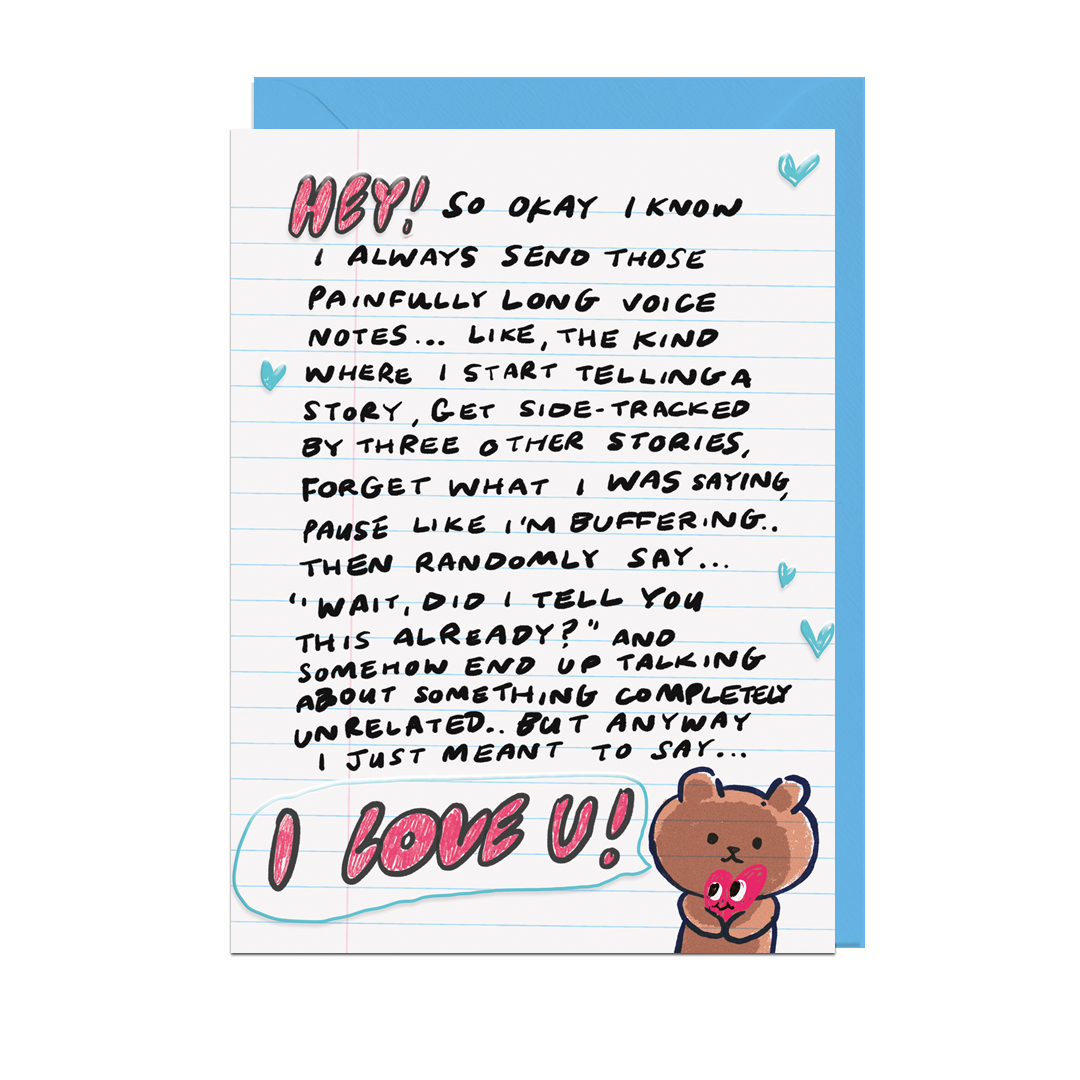 HEY! SO OKAY I KNOW
I ALWAYS SEND THOSE
PAINFULLY LONG VOICE
NOTES... LIKE, THE KIND
WHERE I START TELLING A
STORY, GET SIDE-TRACKED
BY THREE OTHER STORIES,
FORGET WHAT I WAS SAYING,
PAUSE LIKE I'M BUFFERING..
THEN RANDOMLY SAY...
"WAIT, DID I TELL YOU
THIS ALREADY?" AND
SOMEHOW END UP TALKING
ABOUT SOMETHING COMPLETELY
UNRELATED.. BUT ANYWAY
I JUST MEANT TO SAY...
I LOVE U!